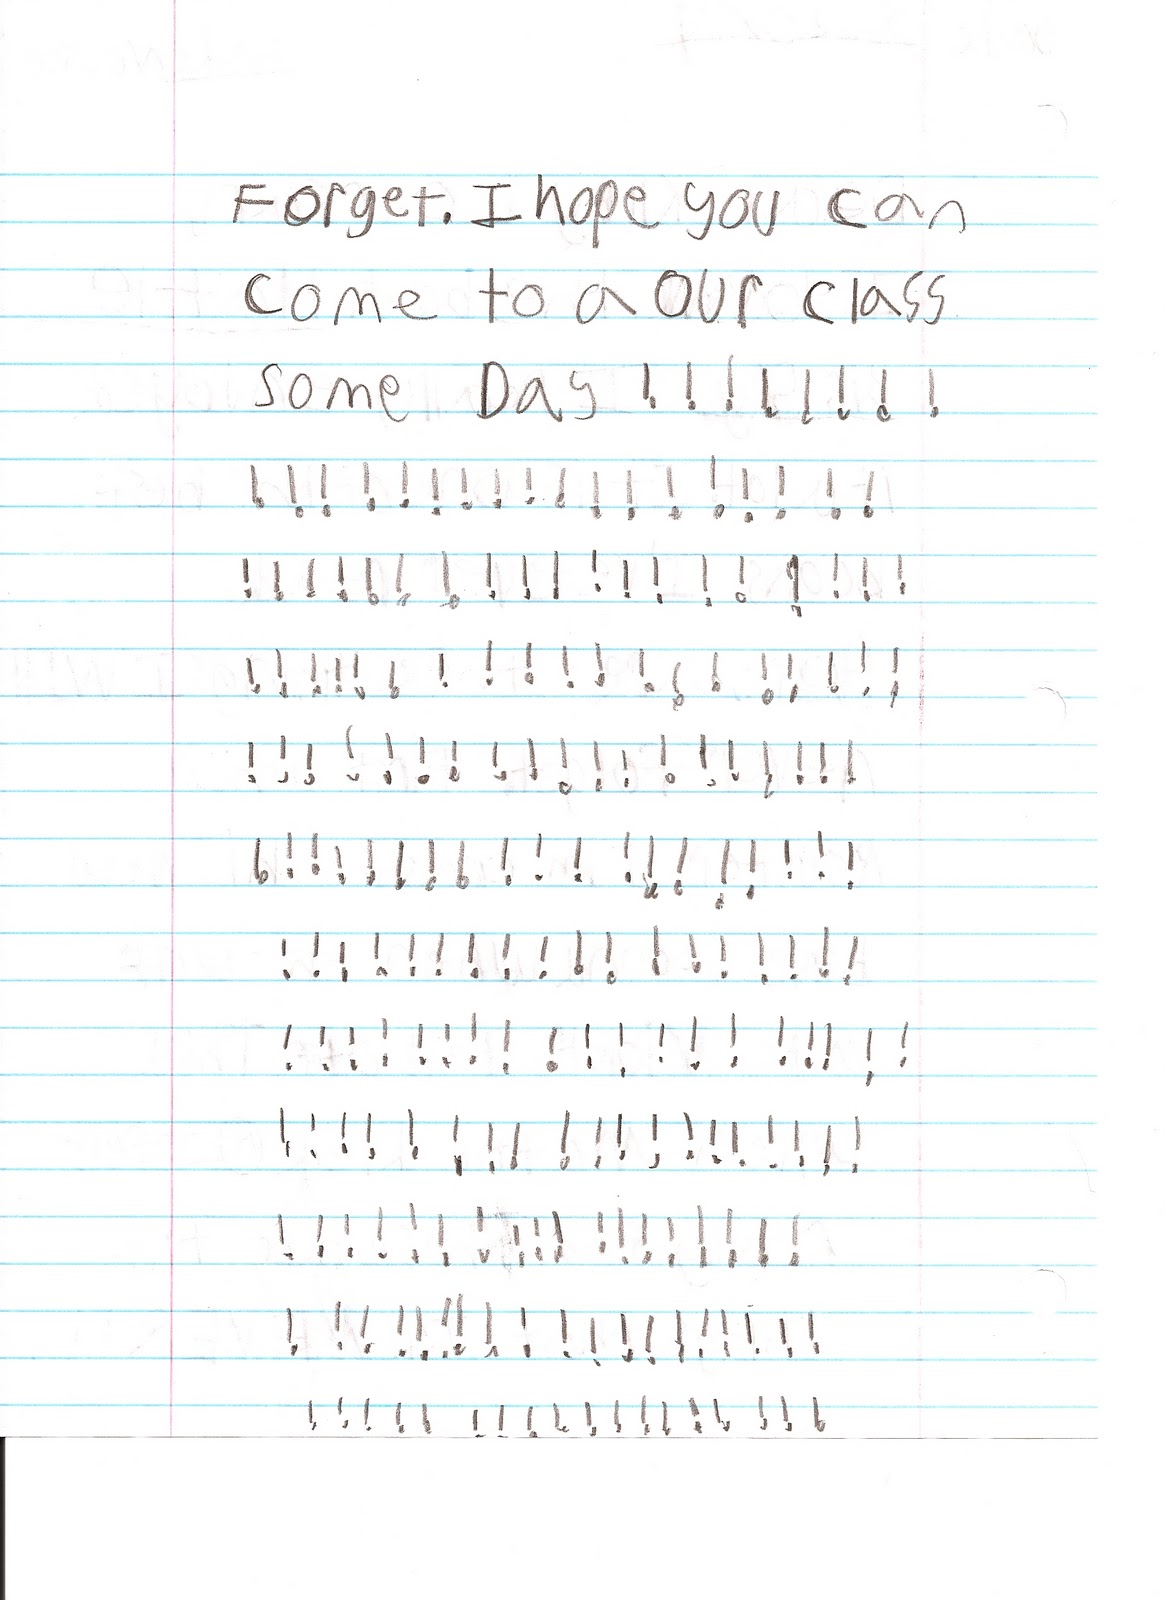 Forget. I hope you can
come to a our class
some Day ! ! ! ! ! ! ! !
! ! ! ! ! ! ! ! ! ! ! ! ! ! ! ! ! !
! ! ! ! ! ! ! ! ! ! ! ! ! ! ! ! ! ! !
! ! ! ! ! ! ! ! ! ! ! ! ! ! ! ! ! ! !
! ! ! ! ! ! ! ! ! ! ! ! ! ! ! ! ! ! !
! ! ! ! ! ! ! ! ! ! ! ! ! ! ! ! ! ! !
! ! ! ! ! ! ! ! ! ! ! ! ! ! ! ! ! !
! ! ! ! ! ! ! ! ! ! ! ! ! ! ! ! ! ! !
! ! ! ! ! ! ! ! ! ! ! ! ! ! ! ! ! ! ! !
! ! ! ! ! ! ! ! ! ! ! ! ! ! ! ! ! ! !
! ! ! ! ! ! ! ! ! ! ! ! ! ! ! ! ! ! ! !
! ! ! ! ! ! ! ! ! ! ! ! ! ! ! ! ! !